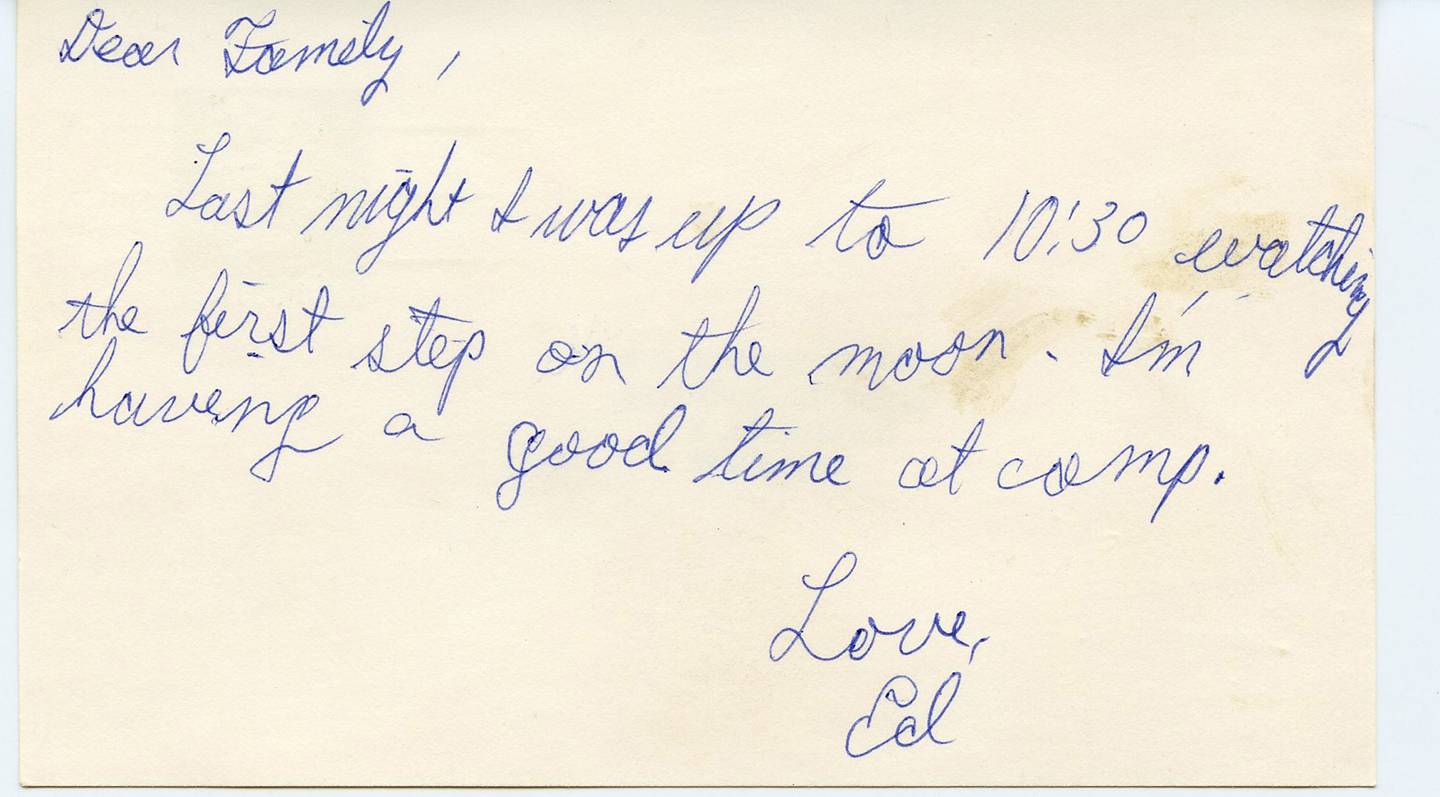 Dear Family,
Last night I was up to 10:30 watching
the first step on the moon. I'm
having a good time at camp.
Love,
Ed